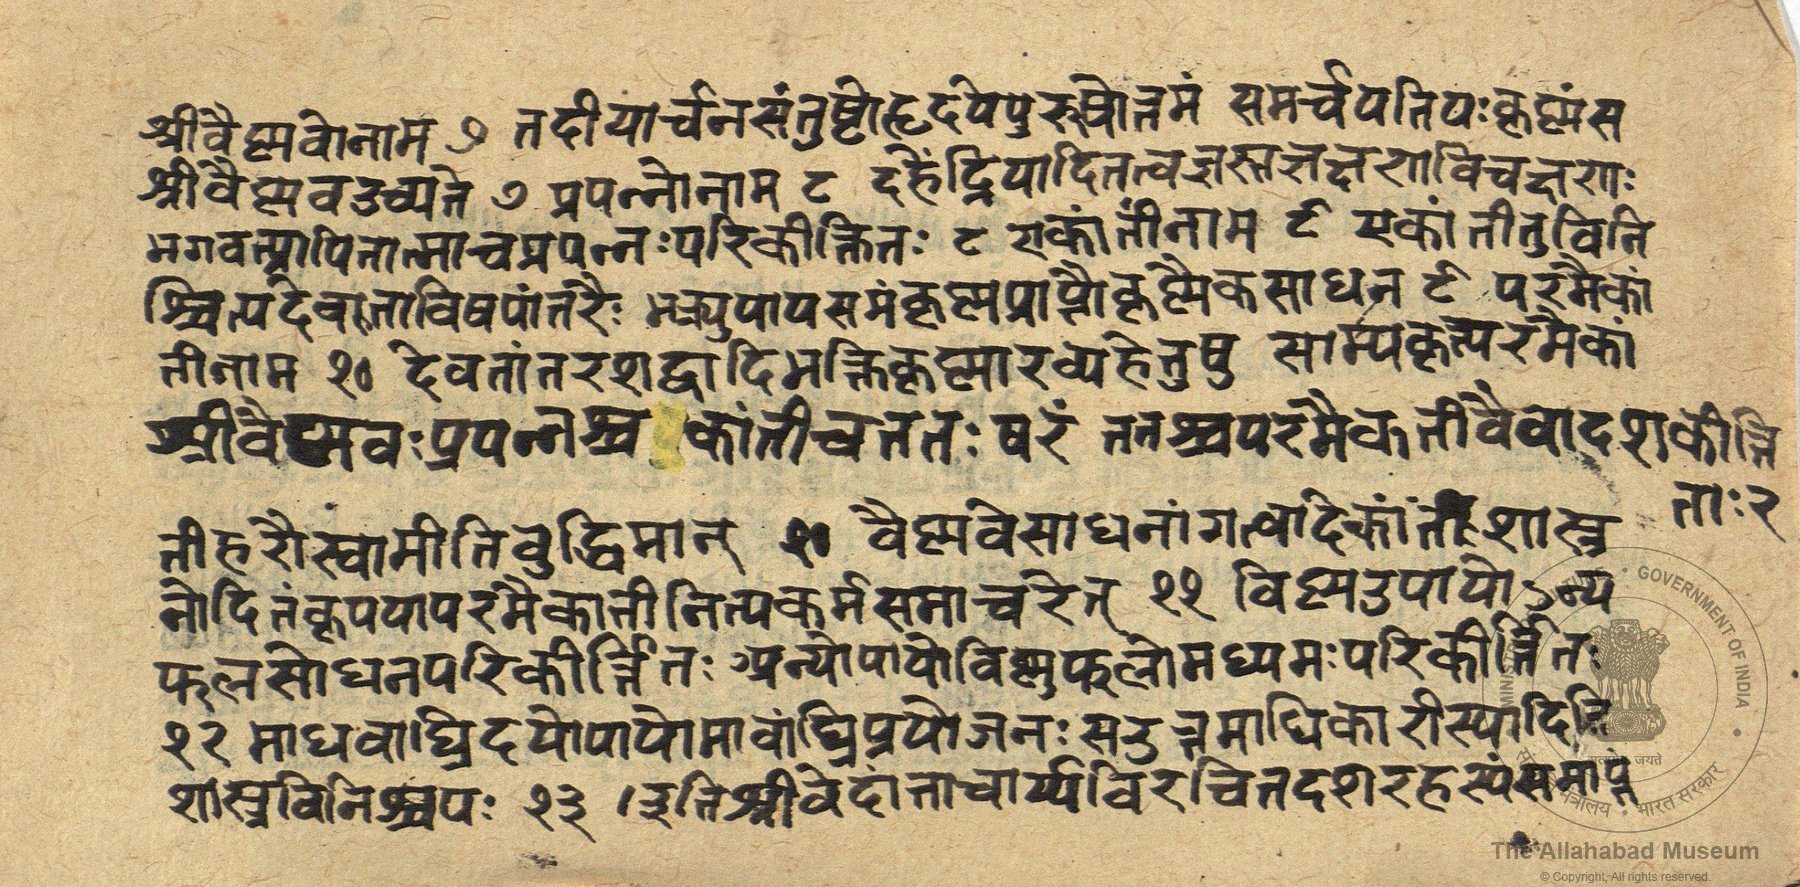 श्रीवैष्मवोनाम ७ तदीयार्चनसंतुष्टोहृदयेपुरुषोत्तमं समर्चयतियःकृष्मंस
श्रीवैष्मवउच्यते ७ प्रपन्नोनाम ८ दहेंद्रियादितत्वज्ञस्तज्ञक्षराविचक्षराः
भगवत्प्रापितात्माचप्रपन्नःपरिकीर्त्तितः ८ एकांतीनाम ९ एकांतीतुविनि
श्चित्यदेवताविषयांतरैः भक्त्युपायसमंकृष्मप्राप्तौकृष्मैकसाधन ९ परमैकां
तीनाम १० देवतांतरशद्वादिभक्तिकृष्माख्यहेतुषु साम्यकृत्परमैकां
श्रीवैष्मवःप्रपन्नश्च कांतीचततः षरं ततश्चपरमैकतीवैवादशकीर्त्ति
ताः२
तीहरौस्वामीतिबुद्धिमान् १० वैष्मवेसाधनांगत्वादेकांती शास्त्र
नोदितंकृपयापरमैकातीनित्यकर्मसमाचरेत् ११ विष्मउपायोऽन्य
फलसोधनपरिकीर्त्तितः अन्योपायोविष्मुफलोमध्यमःपरिकीर्त्तितः
१२ माधवाघ्रिदयोपायोमावांघ्रिप्रयोजनः सउत्तमाधिकारीस्यादिति
शास्त्रविनिश्चयः १३ ।इतिश्रीवेदांताचार्य्यविरचितदशरहस्यंसमाप्तं
MINIS TURE • GOVERNMENT OF INDIA •
सत्यमेव जयते
मंत्रालय • भारत सरकार
The Allahabad Museum
© Copyright, All rights reserved.